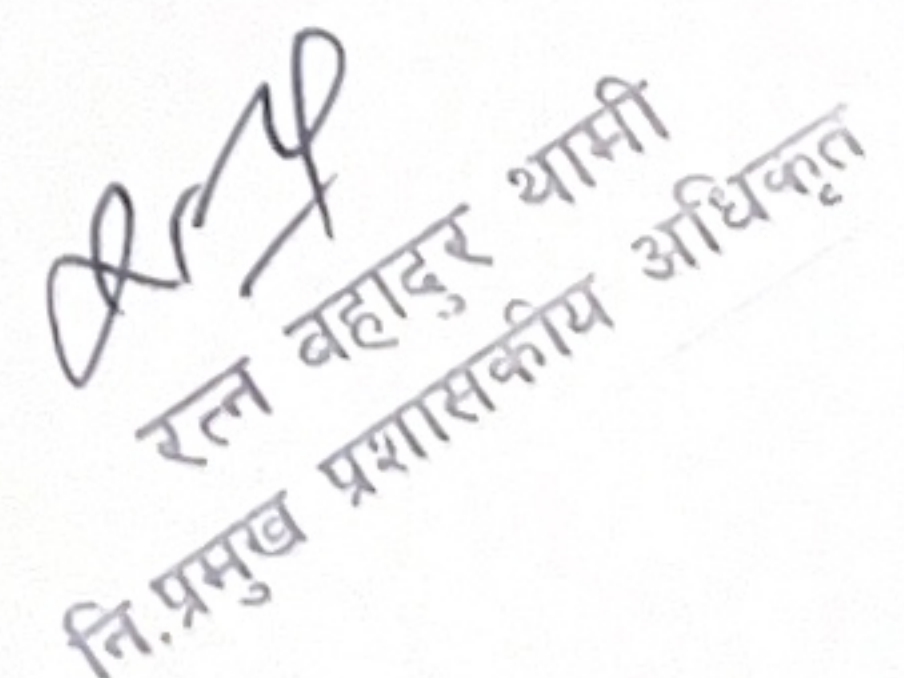 रत्न बहादुर थामी
नि.प्रमुख प्रशासकीय अधिकृत